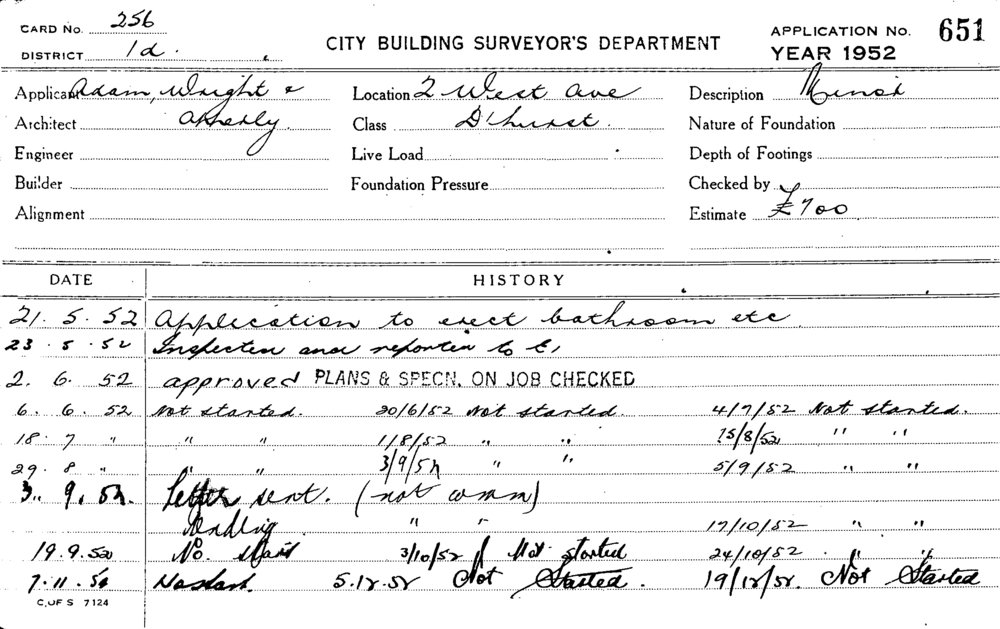 CARD No. 256
DISTRICT 1d.
CITY BUILDING SURVEYOR'S DEPARTMENT
APPLICATION No. 651
YEAR 1952
Applicant Adam, Wright &
Architect Apperly
Engineer
Builder
Alignment
Location 2 West Ave
Class D'hurst.
Live Load
Foundation Pressure
Description Minor
Nature of Foundation
Depth of Footings
Checked by
Estimate £700
DATE HISTORY
21. 5. 52 Application to erect bathroom etc
23. 5. 52 Inspected and reported to
2. 6. 52 approved PLANS & SPECN. ON JOB CHECKED
6. 6. 52 Not started. 20/6/52 Not started. 4/7/52 Not started.
18. 7 " " " 1/8/52 " " 15/8/52 " "
29. 8 " " " 3/9/52 " " 5/9/52 " "
3. 9. 52. Letter sent. (not comm)
" " 17/10/52 " "
19.9.52 No. Start 3/10/52 Not started 24/10/52 " "
7.11.52 No start. 5.12.52 Not Started. 19/12/52. Not Started
C. OF S 7124